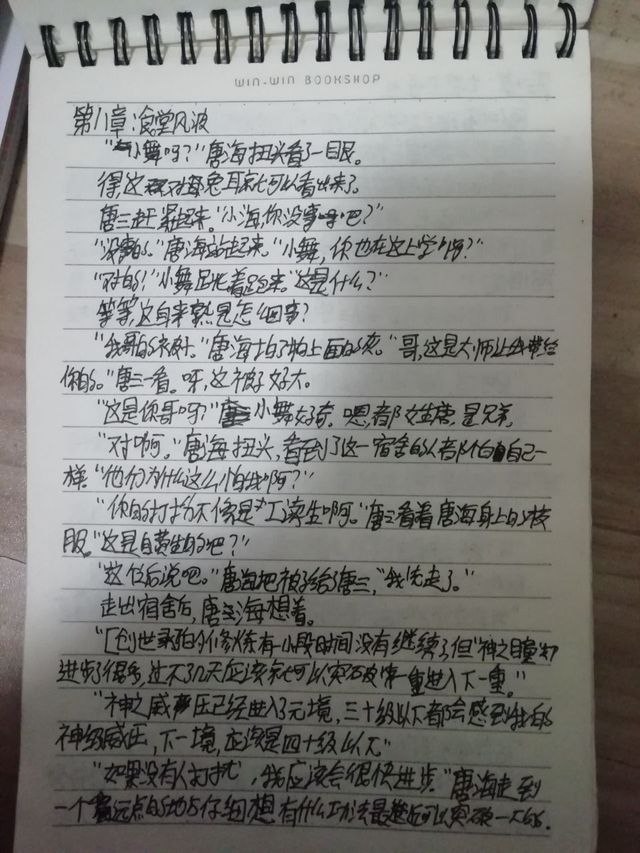 WIN-WIN BOOKSHOP
第八章:食堂风波
"小舞吗?"唐海扭头看了一眼。
徐这对母兔耳就可以看出来了。
唐三赶紧起来。"小海,你没事吧?"
"没事的。"唐海站起来。"小舞,你也在这上学啊?"
"对的!"小舞跑着过来。"这是什么?"
等等,这自来熟是怎么回事?
"我哥的被子。"唐海拍了拍上面的灰。"哥,这是大师让我带给
你的。"唐三一看。呀,这被子好大。
"这是你哥吗?"小舞好奇。嗯,都姓唐,是兄弟。
"对啊。"唐海扭头,看到了这一宿舍的人都怕自己一
样。"他们为什么这么怕我啊?"
"你的打扮不像是工读生啊。"唐三看着唐海身上的校
服。"这是自费生的吧?"
"这位后说吧。"唐海把被子给了唐三,"我先走了。"
走出宿舍后,唐海想着。
"[创世录]的修炼有一小段时间没有继续了,但"神之瞳"却
进步了很多,过不了几天应该就可以突破第一重进入下一重。"
"神之威压已经进入了元境,三十级以下都会感到我的
神级威压,下一境,应该是四十级以下"
"如果没有人打扰,我应该会很快进步。"唐海走到
一个偏远点的地方仔细想有什么功法最近可以突破一下的.